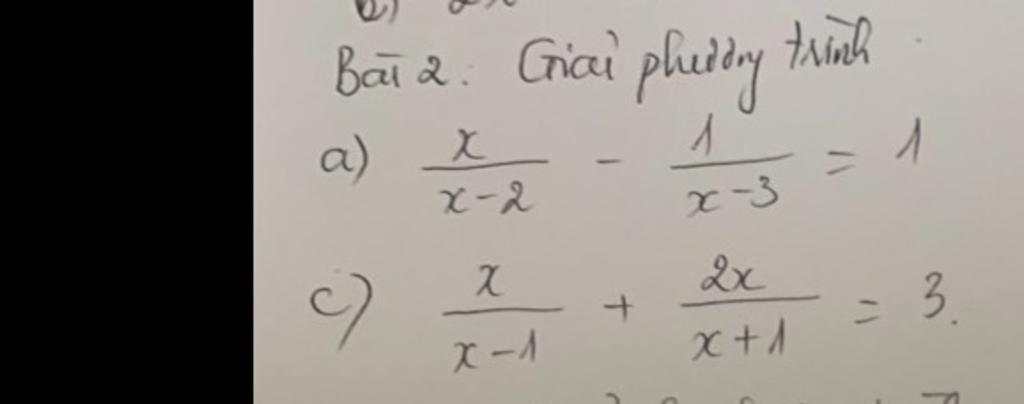 Bài 2: Giải phương trình
a) x/(x-2) - 1/(x-3) = 1
c) x/(x-1) + 2x/(x+1) = 3.